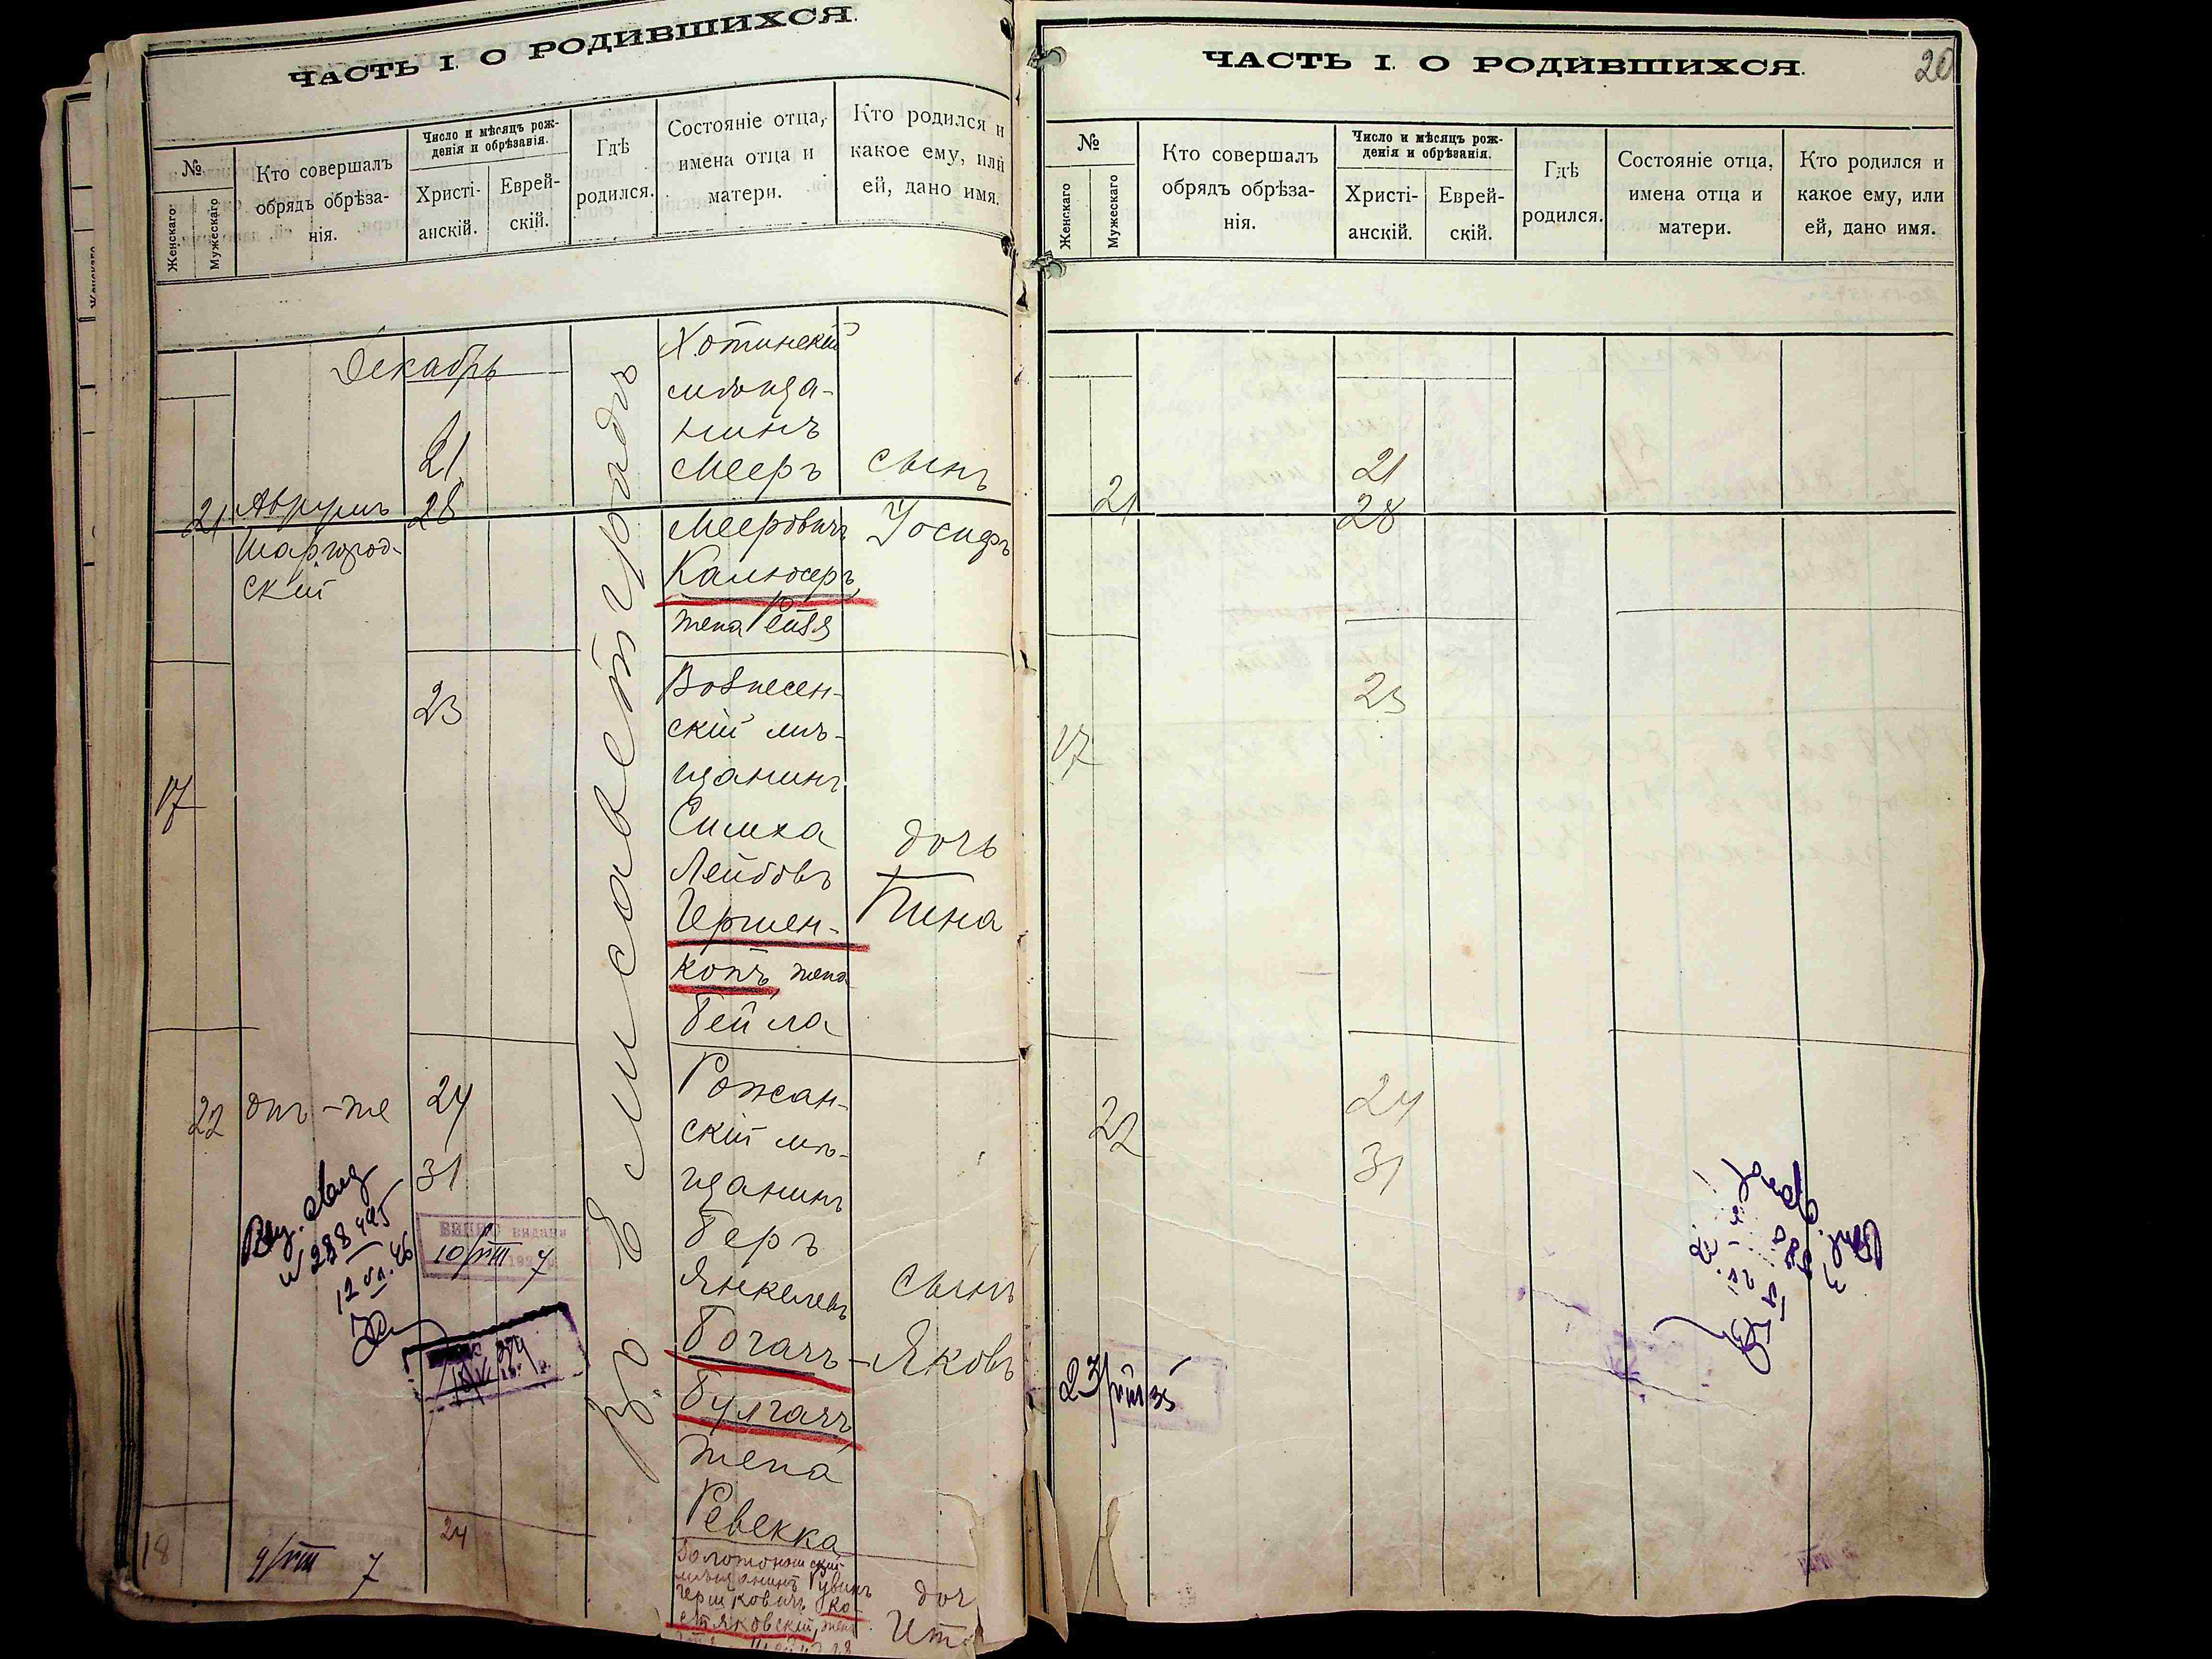 ЧАСТЬ I. О РОДИВШИХСЯ.
№
Женскаго
Мужескаго
Кто совершалъ
обрядъ обрѣза-
нія.
Число и мѣсяцъ рож-
денія и обрѣзанія.
Христі-
анскій.
Еврей-
скій.
Гдѣ
родился.
Состояніе отца,
имена отца и
матери.
Кто родился и
какое ему, или
ей, дано имя.
Декабрь
Въ Елисаветградѣ
21
Аврумъ
Шаргород-
скій
21
28
Хотинскій
мѣща-
нинъ
Мееръ
Мееровичъ
жена Рейзя
сынъ
Іосифъ
17
23
Вознесен-
скій мѣ-
щанинъ
Симха
Лейбовъ
Гершен-
копъ, жена
Бейла
дочь
Пина
22
онъ-же
24
31
Рожан-
скій мѣ-
щанинъ
Беръ
Янкелевъ
Богачъ-
Булгачъ,
жена
Ревекка
сынъ
Яковъ
10/VIII 7
18
9/VIII 7
24
Золотоношскій
мѣщанинъ Рувинъ
Гершковичъ Ко-
стяковскій, жена
доч
Ита
ЧАСТЬ I. О РОДИВШИХСЯ.
20
№
Женскаго
Мужескаго
Кто совершалъ
обрядъ обрѣза-
нія.
Число и мѣсяцъ рож-
денія и обрѣзанія.
Христі-
анскій.
Еврей-
скій.
Гдѣ
родился.
Состояніе отца,
имена отца и
матери.
Кто родился и
какое ему, или
ей, дано имя.
21
21
28
17
23
22
24
31
23/VIII 35